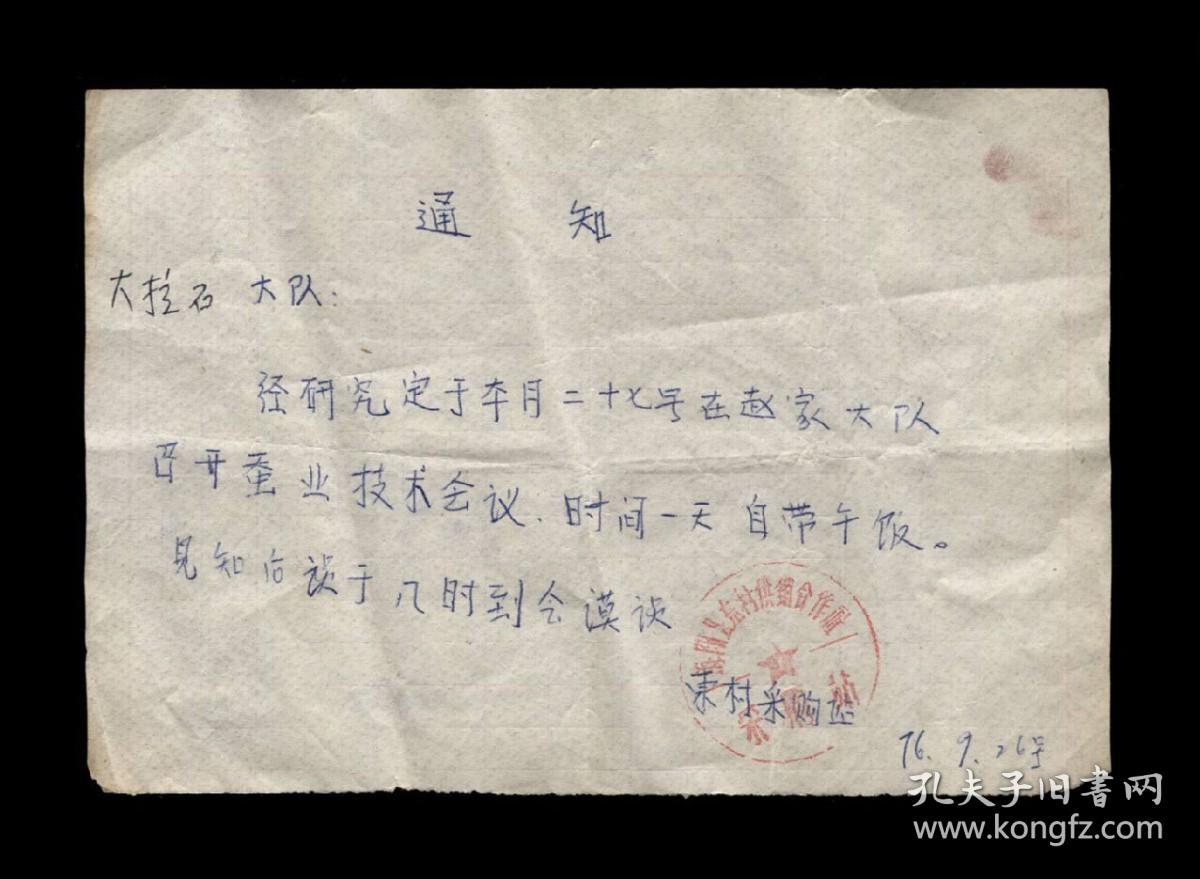 通 知
大拉石 大队：
经研究定于本月二十七号在赵家大队
召开蚕业技术会议、时间一天 自带午饭。
见知后 于八时到会
东村采购站
海阳县东村供销合作社
采购站
76.9.26号
孔夫子旧书网
www.kongfz.com